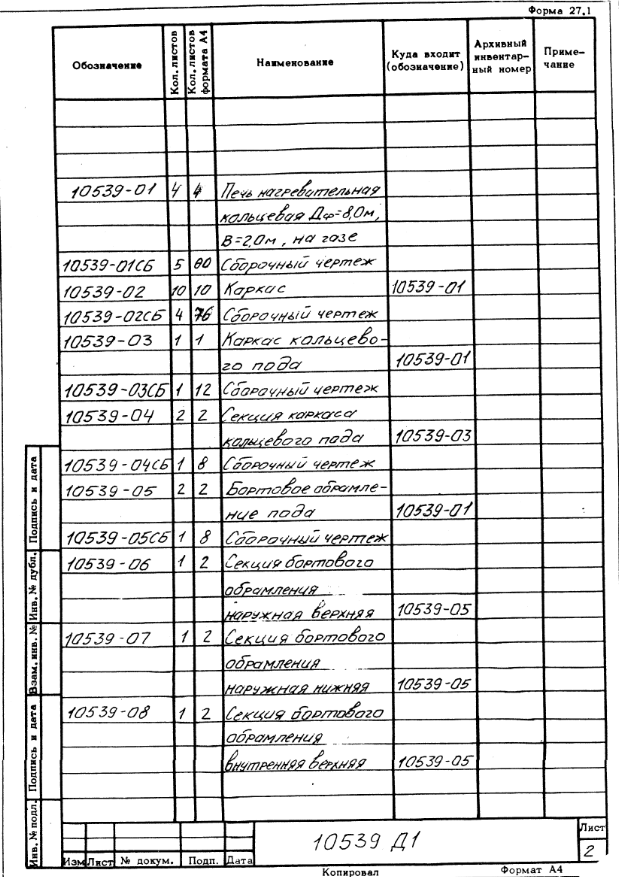 Форма 27.1
Обозначение Кол. листов Кол. листов формата А4 Наименование Куда входит (обозначение) Архивный инвентарный номер Примечание
10539-01 4 4 Печь нагревательная
кольцевая Дср=8,0м,
В=2,0м, на газе
10539-01СБ 5 80 Сборочный чертеж
10539-02 10 10 Каркас 10539-01
10539-02СБ 4 76 Сборочный чертеж
10539-03 1 1 Каркас кольцево-
го пода 10539-01
10539-03СБ 1 12 Сборочный чертеж
10539-04 2 2 Секция каркаса
кольцевого пода 10539-03
10539-04СБ 1 8 Сборочный чертеж
10539-05 2 2 Бортовое обрамле-
ние пода 10539-01
10539-05СБ 1 8 Сборочный чертеж
10539-06 1 2 Секция бортового
обрамления
наружная верхняя 10539-05
10539-07 1 2 Секция бортового
обрамления
наружная нижняя 10539-05
10539-08 1 2 Секция бортового
обрамления
внутренняя верхняя 10539-05
Инв. № подл. Подпись и дата Взам. инв. № Инв. № дубл. Подпись и дата
10539 Д1
Лист
2
Изм Лист № докум. Подп. Дата
Копировал Формат А4